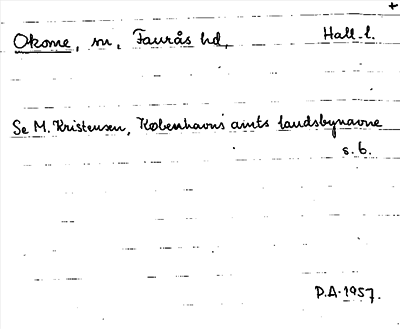 +
Okome, sn, Faurås hd, Hall. l.
Se M. Kristensen, Københavns amts landsbynavne
s. 6.
P.A. 1957.